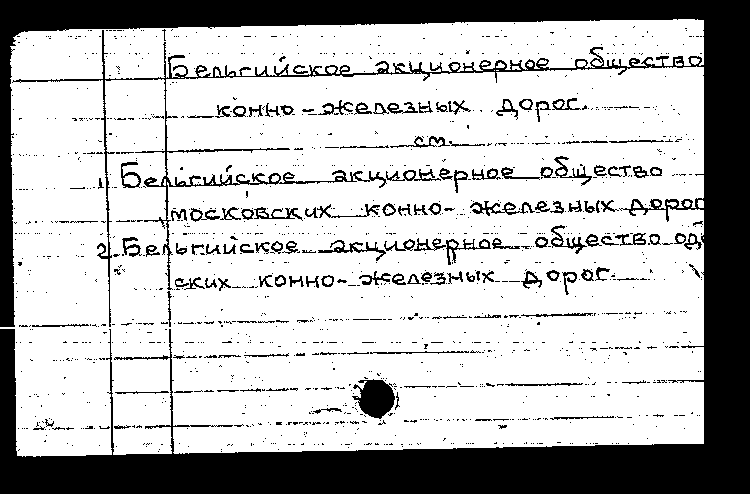 Бельгийское акционерное общество
конно-железных дорог.
см.
1. Бельгийское акционерное общество
московских конно-железных дорог
2. Бельгийское акционерное общество од
ских конно-железных дорог.